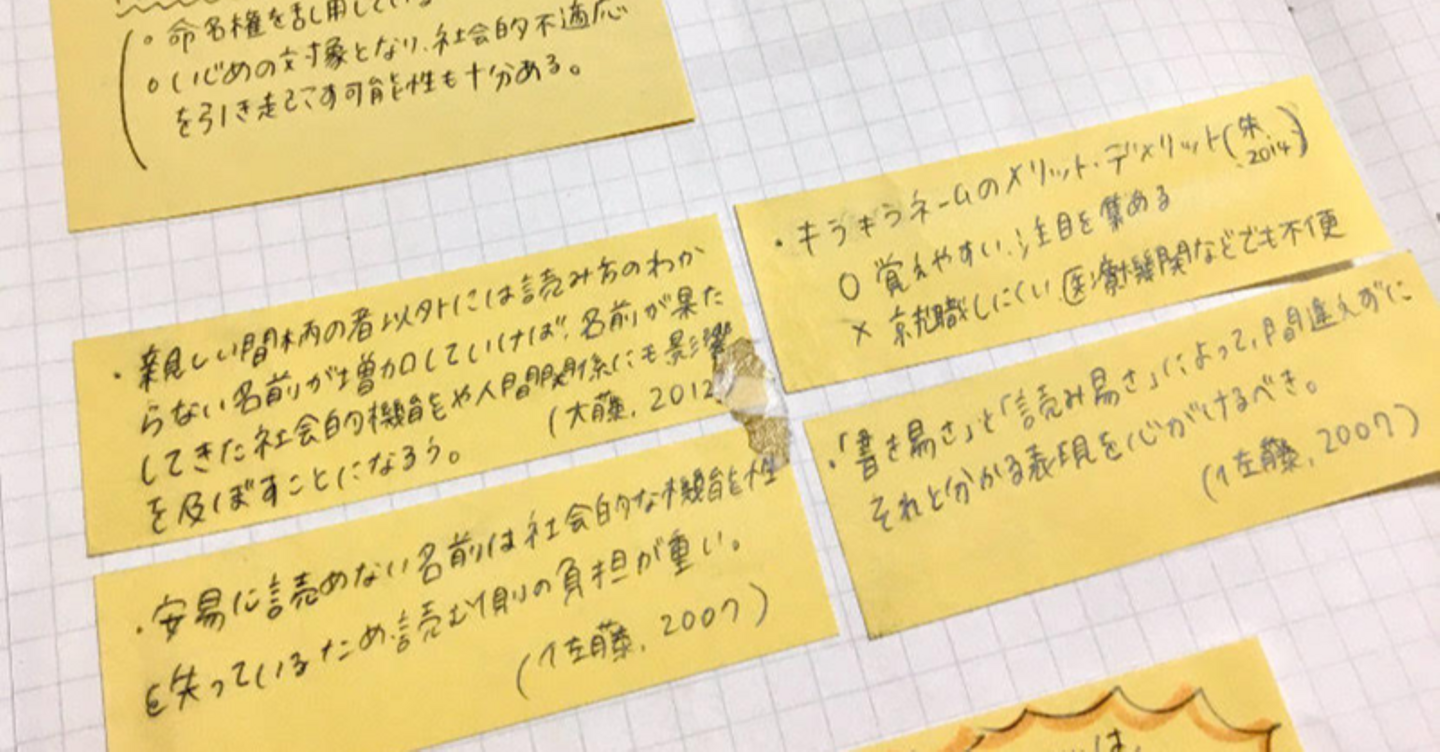 ○ 命名権を乱用している
○ いじめの対象となり、社会的不適応
を引き起こす可能性も十分ある。
・親しい間柄の者以外には読み方のわか
らない名前が増加していけば、名前が果た
してきた社会的機能や人間関係にも影響
を及ぼすことになろう。 (大藤, 2012
・安易に読めない名前は社会的な機能性
を失っているため、読む側の負担が重い。
(佐藤, 2007)
・キラキラネームのメリット・デメリット(朱, 2014)
○ 覚えやすい、注目を集める
× 就職しにくい、医療機関などでも不便
・「書き易さ」と「読み易さ」によって、間違えずに
それと分かる表現を心がけるべき。
(佐藤, 2007)
は、